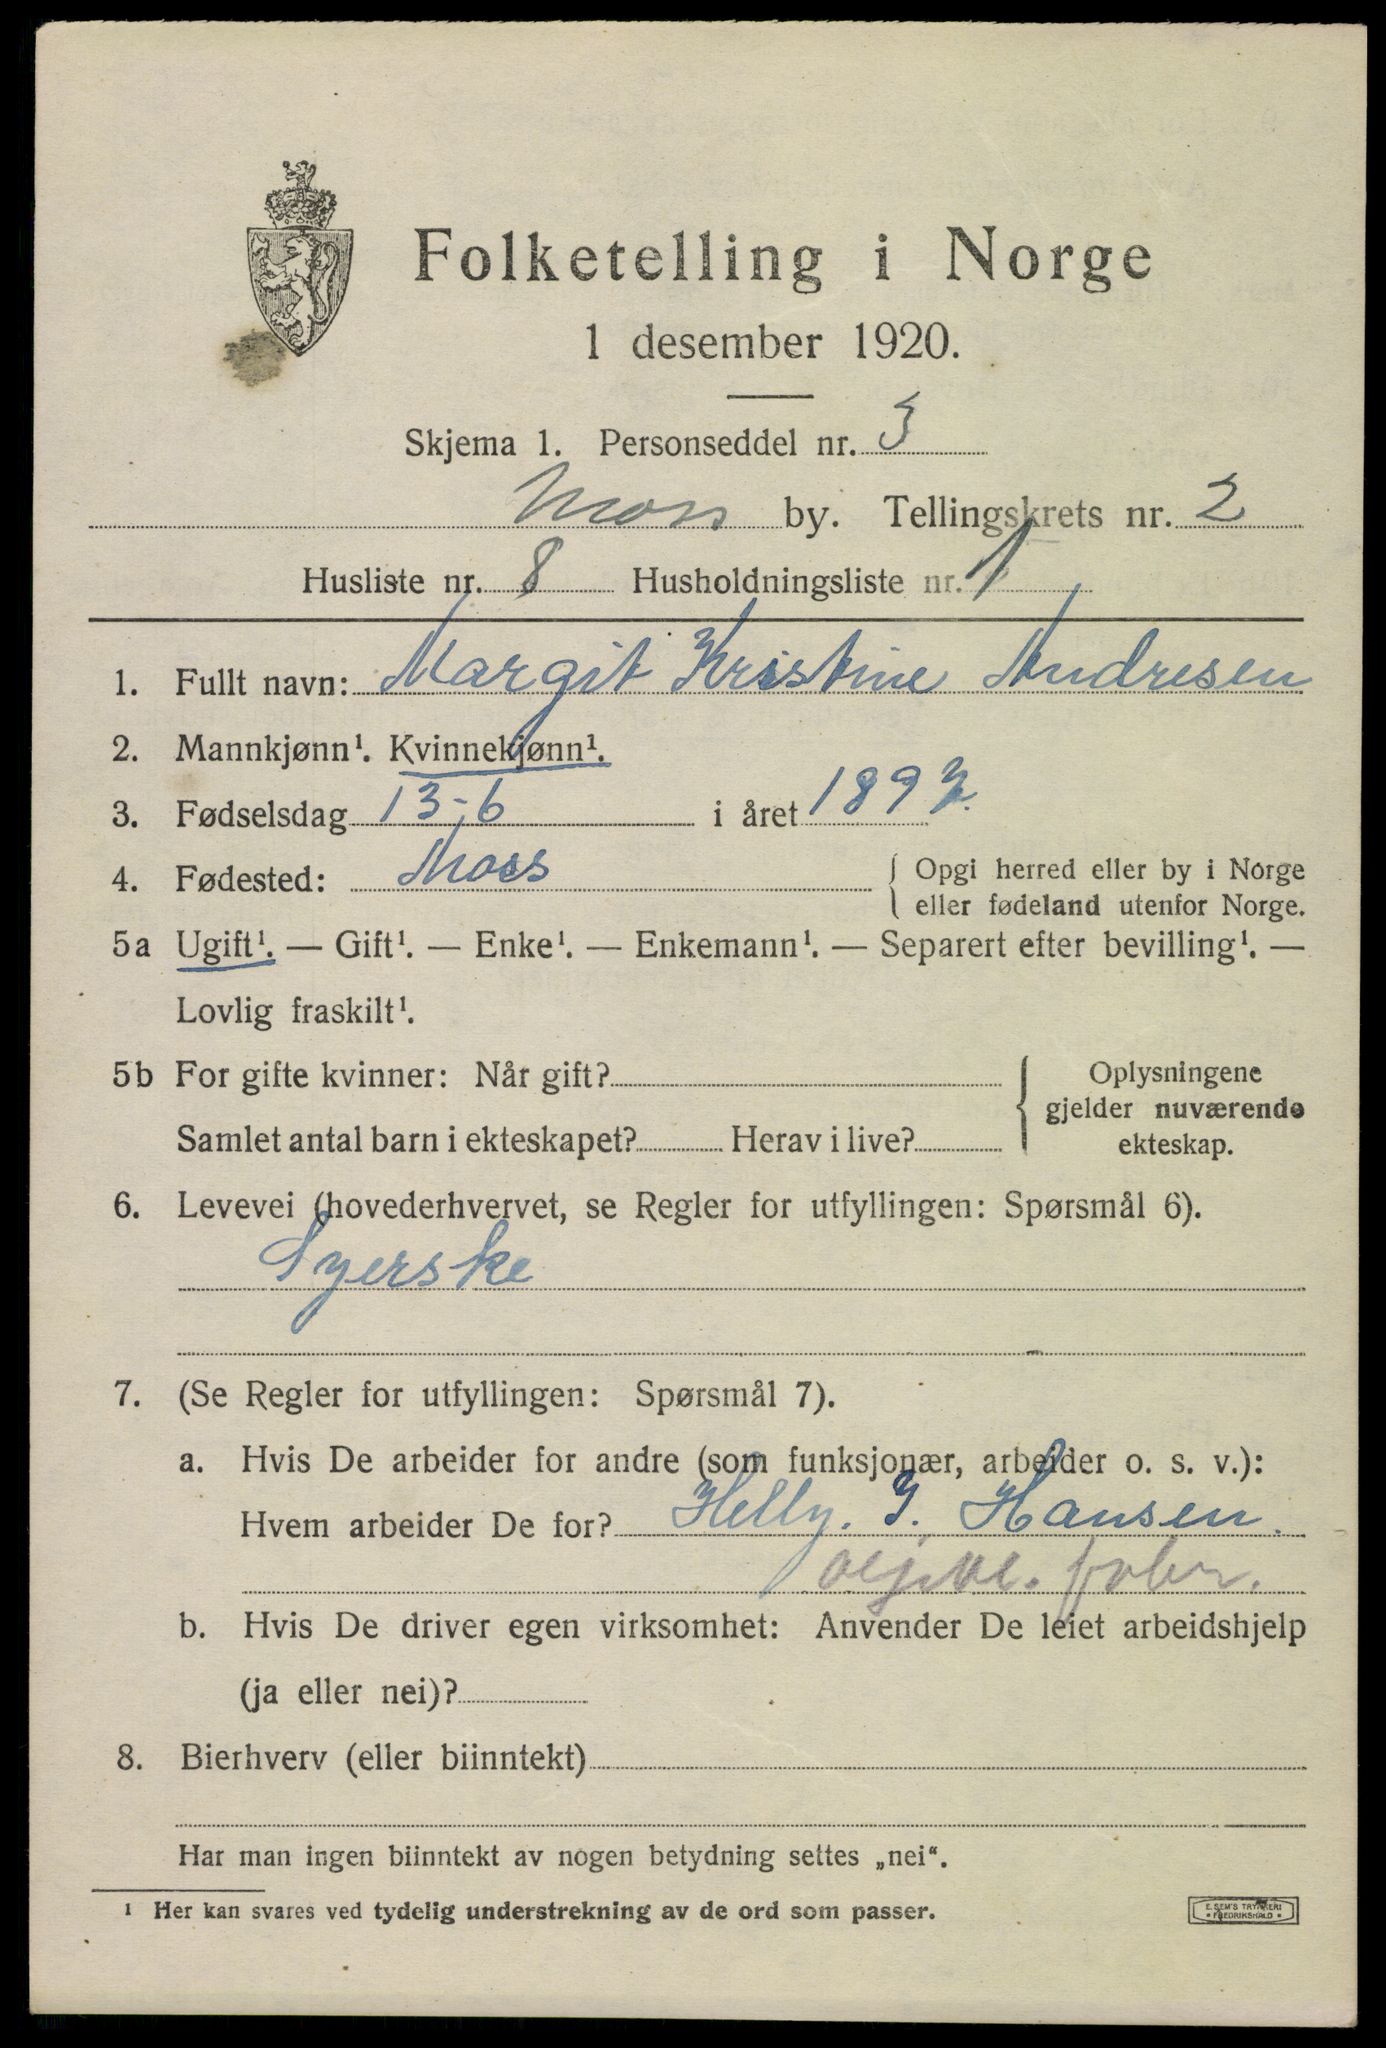 Folketelling i Norge
1 desember 1920.
Skjema 1. Personseddel nr. 3
Moss by. Tellingskrets nr. 2
Husliste nr. 8 Husholdningsliste nr. 1
1. Fullt navn: Margit Kristine Andresen
2. Mannkjønn¹. Kvinnekjønn¹.
3. Fødselsdag 13-6 i året
4. Fødested: Moss { Opgi herred eller by i Norge
eller fødeland utenfor Norge.
5a Ugift¹. — Gift¹. — Enke¹. — Enkemann¹. — Separert efter bevilling¹. —
Lovlig fraskilt¹.
5b For gifte kvinner: Når gift? { Oplysningene
gjelder nuværende
Samlet antal barn i ekteskapet? Herav i live? ekteskap.
6. Levevei (hovederhvervet, se Regler for utfyllingen: Spørsmål 6).
Syerske
7. (Se Regler for utfyllingen: Spørsmål 7).
a. Hvis De arbeider for andre (som funksjonær, arbeider o. s. v.):
Hvem arbeider De for? Helly. J. Hansen.
fabr.
b. Hvis De driver egen virksomhet: Anvender De leiet arbeidshjelp
(ja eller nei)?
8. Bierhverv (eller biinntekt)
Har man ingen biinntekt av nogen betydning settes „nei“.
¹ Her kan svares ved tydelig understrekning av de ord som passer.
E. SEM'S TRYKKERI
• FREDRIKSHALD •